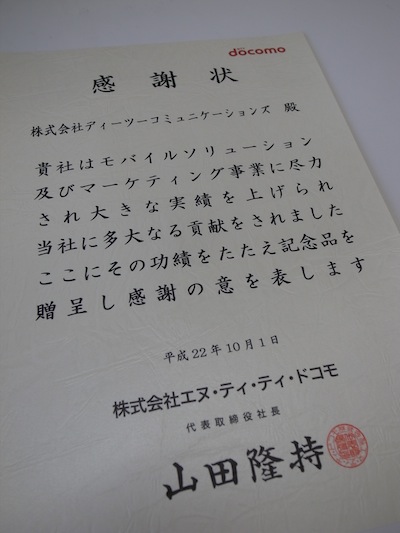 döcomo
感謝状
株式会社ディーツーコミュニケーションズ 殿
貴社はモバイルソリューション
及びマーケティング事業に尽力
され大きな実績を上げられ
当社に多大なる貢献をされました
ここにその功績をたたえ記念品を
贈呈し感謝の意を表します
平成22年10月1日
株式会社エヌ・ティ・ティ・ドコモ
代表取締役社長
山田隆持